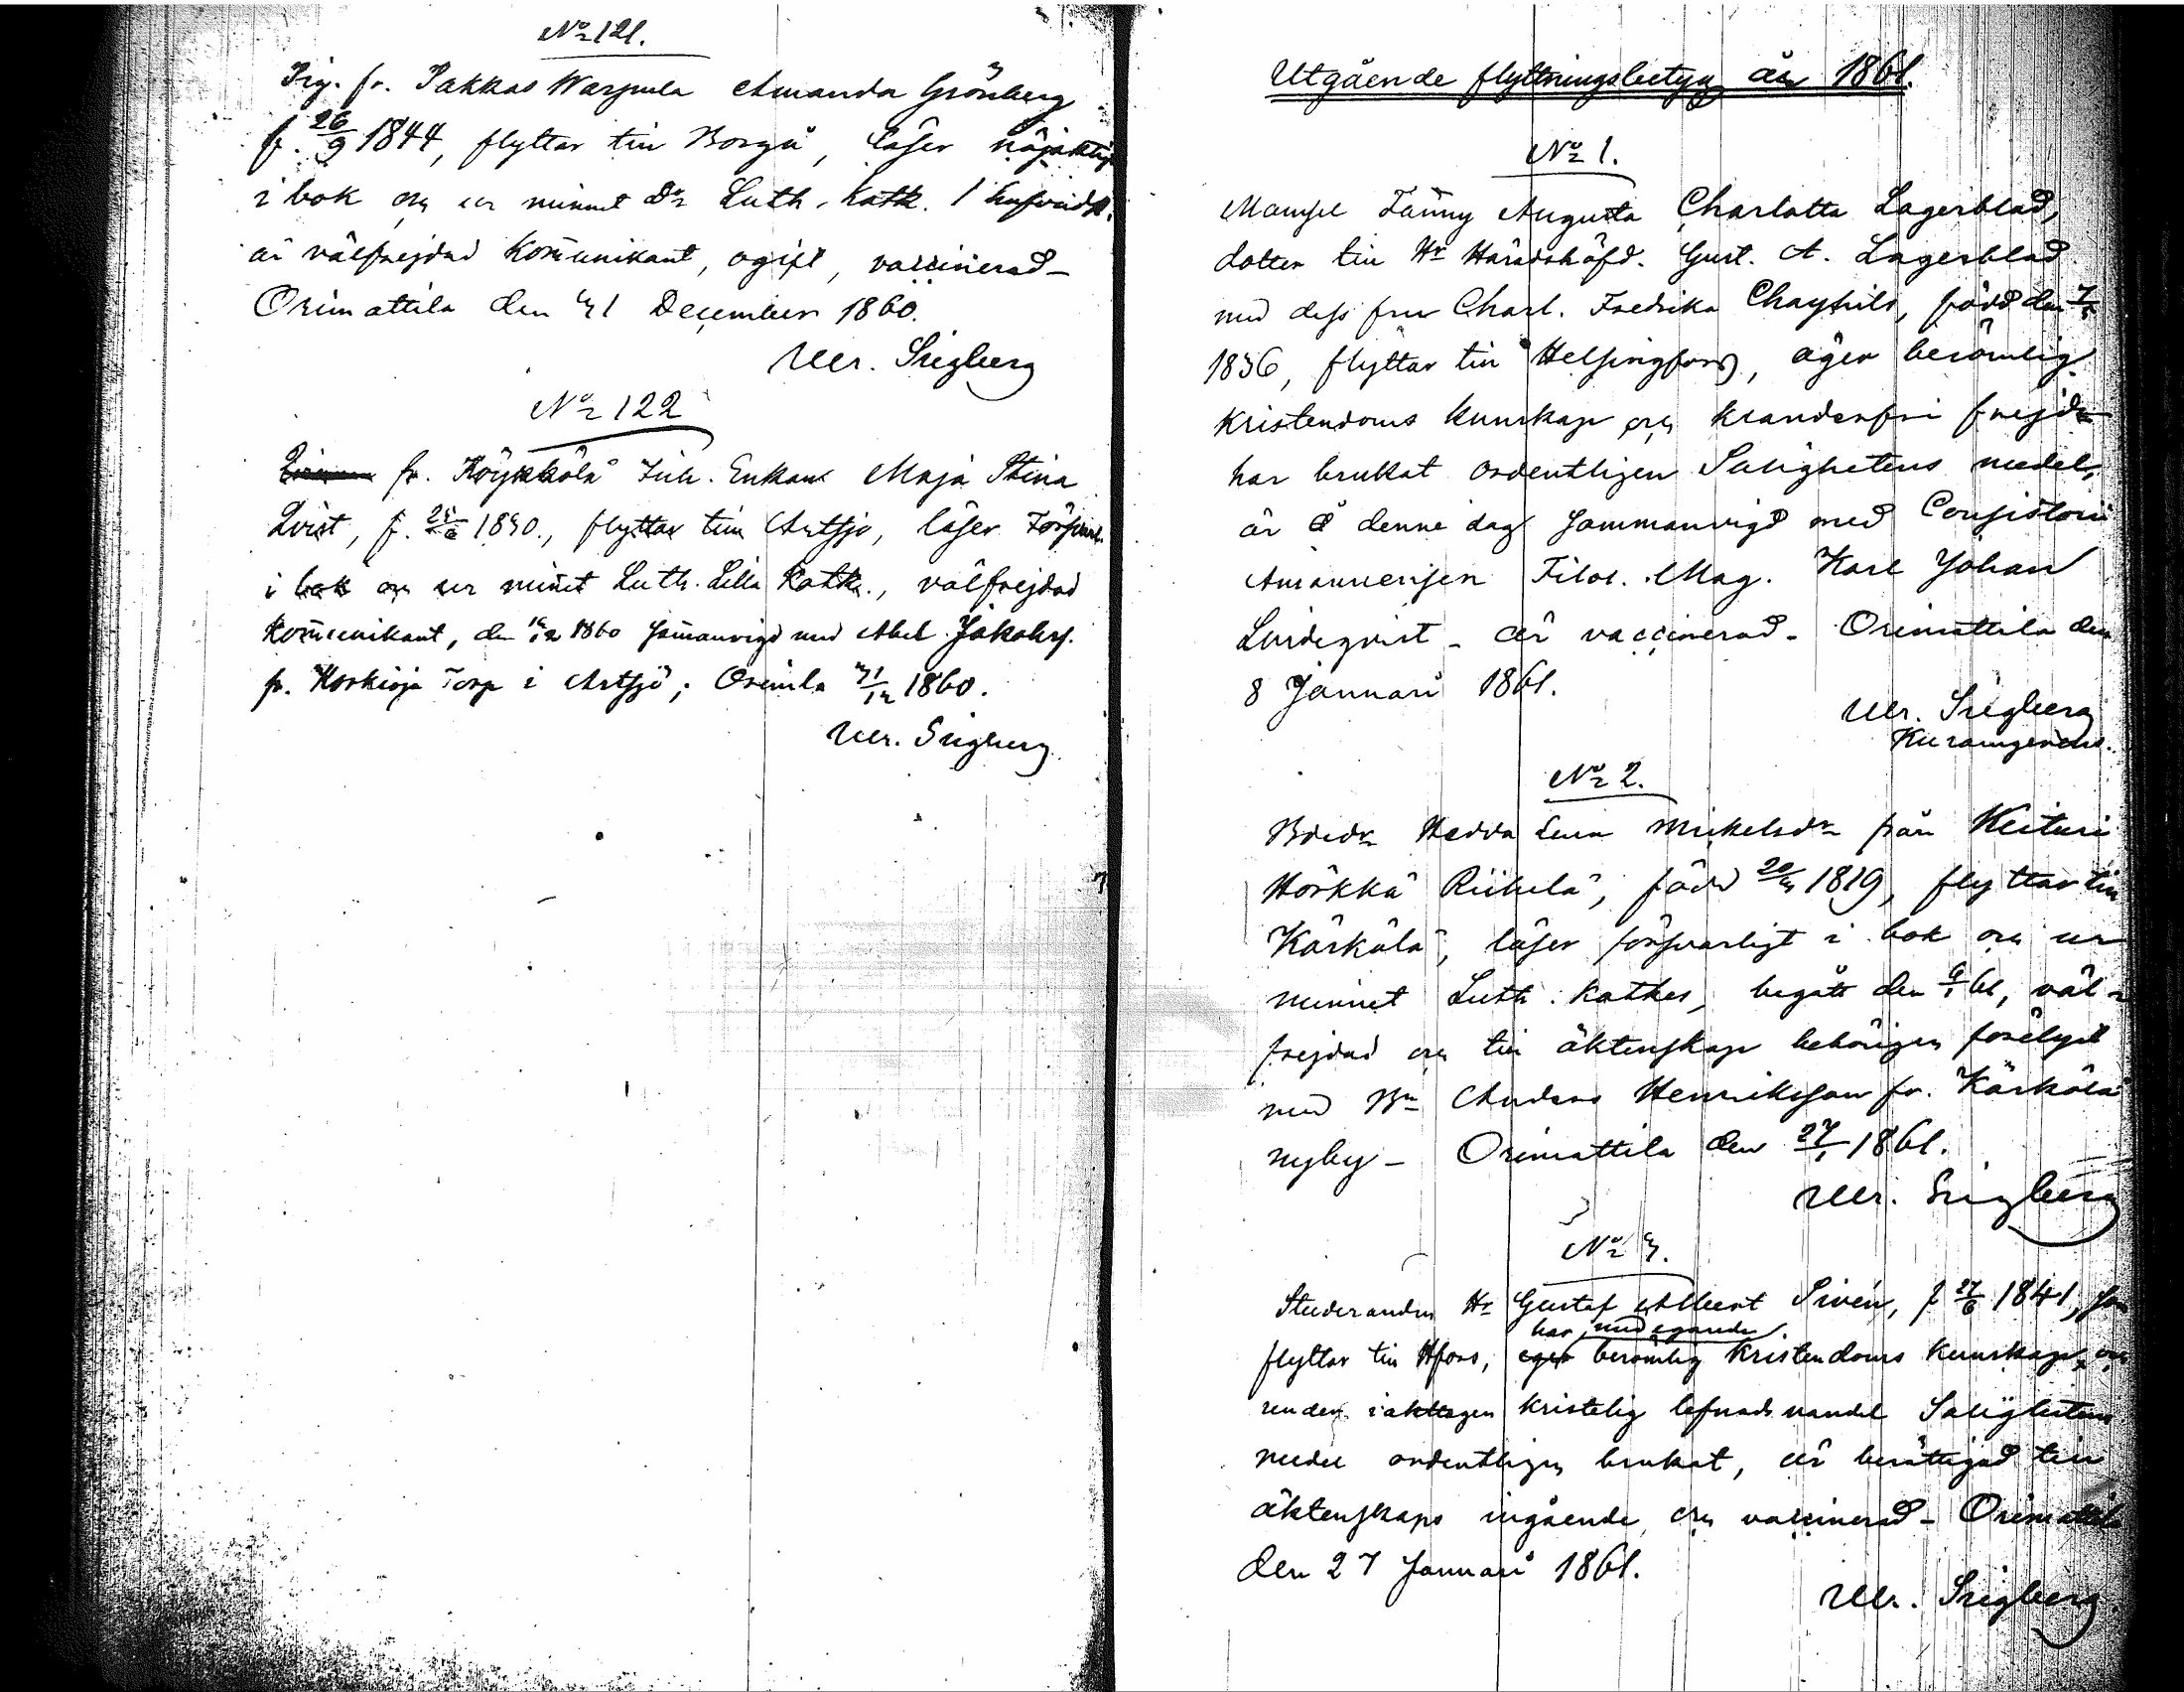 No 121.
Pig. fr. Pakkas Warpula Amanda Grönberg
f. 26/9 1844, flyttar till Borgå, läser nöjaktigt
i bok och ur minnet Dr Luth. Katk. 1 hufvudst.
är välfrejdad kommunikant, ogift, vaccinerad –
Orimattila den 31 December 1860.
Ulr. Siegberg
No 122
fr. Köykkölä Inh. Enkan Maja Stina
Qvist, f. 1830., flyttar till Artsjö, läser Försvarl.
i bok och ur minnet Luth. Lilla Katk., välfrejdad
kommunikant, den 1860 sammanvigd med Abel Jakobss.
fr. Korkioja Torp i Artsjö; Orimla 31/12 1860.
Ulr. Siegberg
Utgående flyttningsbetyg år 1861.
No 1.
Mamsel Fanny Augusta Charlotta Lagerblad,
dotter till Hr Häradshöfd. Gust. A. Lagerblad
med dess fru Charl. Fredrika , född den
1836, flyttar till Helsingfors, äger berömlig
kristendoms kunskap och klanderfri frejd
har brukat ordentligen Salighetens medel,
är denne dag sammanvigd med Consistorii
Amanuensen Filos. Mag. Karl Johan
Lindeqvist – är vaccinerad – Orimattila den
8 Januari 1861.
Ulr. Siegberg
No 2.
Hedda Lena Mikelsdr från Keituri
Hörkkä Riihelä, född 1819, flyttar till
Kärkölä, läser försvarligt i bok och ur
minnet Luth. Kathes, begått den 6/1 61, väl-
frejdad och till äktenskap behörigen förelyst
med Bn Anders Henriksson fr. Kärkölä
nyby – Orimattila den 27/1 1861.
Ulr. Siegberg
No 3.
Studeranden Hr Gustaf Albert Sivén, f 27/6 1841, som
har, med egande
flyttar till Hfors, eger berömlig Kristendoms Kunskap, och
under iakttagen kristelig lefnads vandel Salighetens
medel ordentligen brukat, är berättigad till
äktenskaps ingående, och vaccinerad – Orimattila
den 27 Januari 1861.
Ulr. Siegberg.